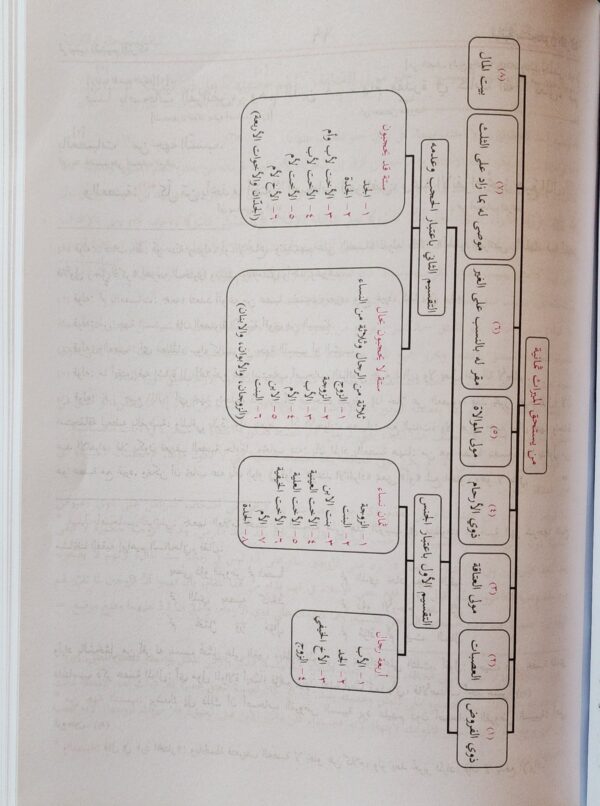 من يستحق الميراث ثمانية
(١)
ذوي الفروض
(٢)
العصبات
(٣)
مولى العتاقة
(٤)
ذوي الأرحام
(٥)
مولى الموالاة
(٦)
مقر له بالنسب على الغير
(٧)
موصى له بما زاد على الثلث
(٨)
بيت المال
التقسيم الأول باعتبار الجنس
أربعة رجال
١- الأب
٢- الجد
٣- الأخ الخيفي
٤- الزوج
ثمان نساء
١- الزوجة
٢- البنت
٣- بنت الابن
٤- الأخت العينية
٥- الأخت العلية
٦- الأخت الخيفية
٧- الأم
٨- الجدة
التقسيم الثاني باعتبار الحجب وعدمه
ستة لا يحجبون بحال
ثلاثة من الرجال وثلاثة من النساء
١- الزوج
٢- الزوجة
٣- الأب
٤- الأم
٥- الابن
٦- البنت
(الزوجان، والأبوان، والابنان)
ستة قد يحجبون
١- الجد
٢- الجدة
٣- الأخت لأب وأم
٤- الأخت لأب
٥- الأخت لأم
٦- الأخ لأم
(الجدّان والأخوات الأربعة)